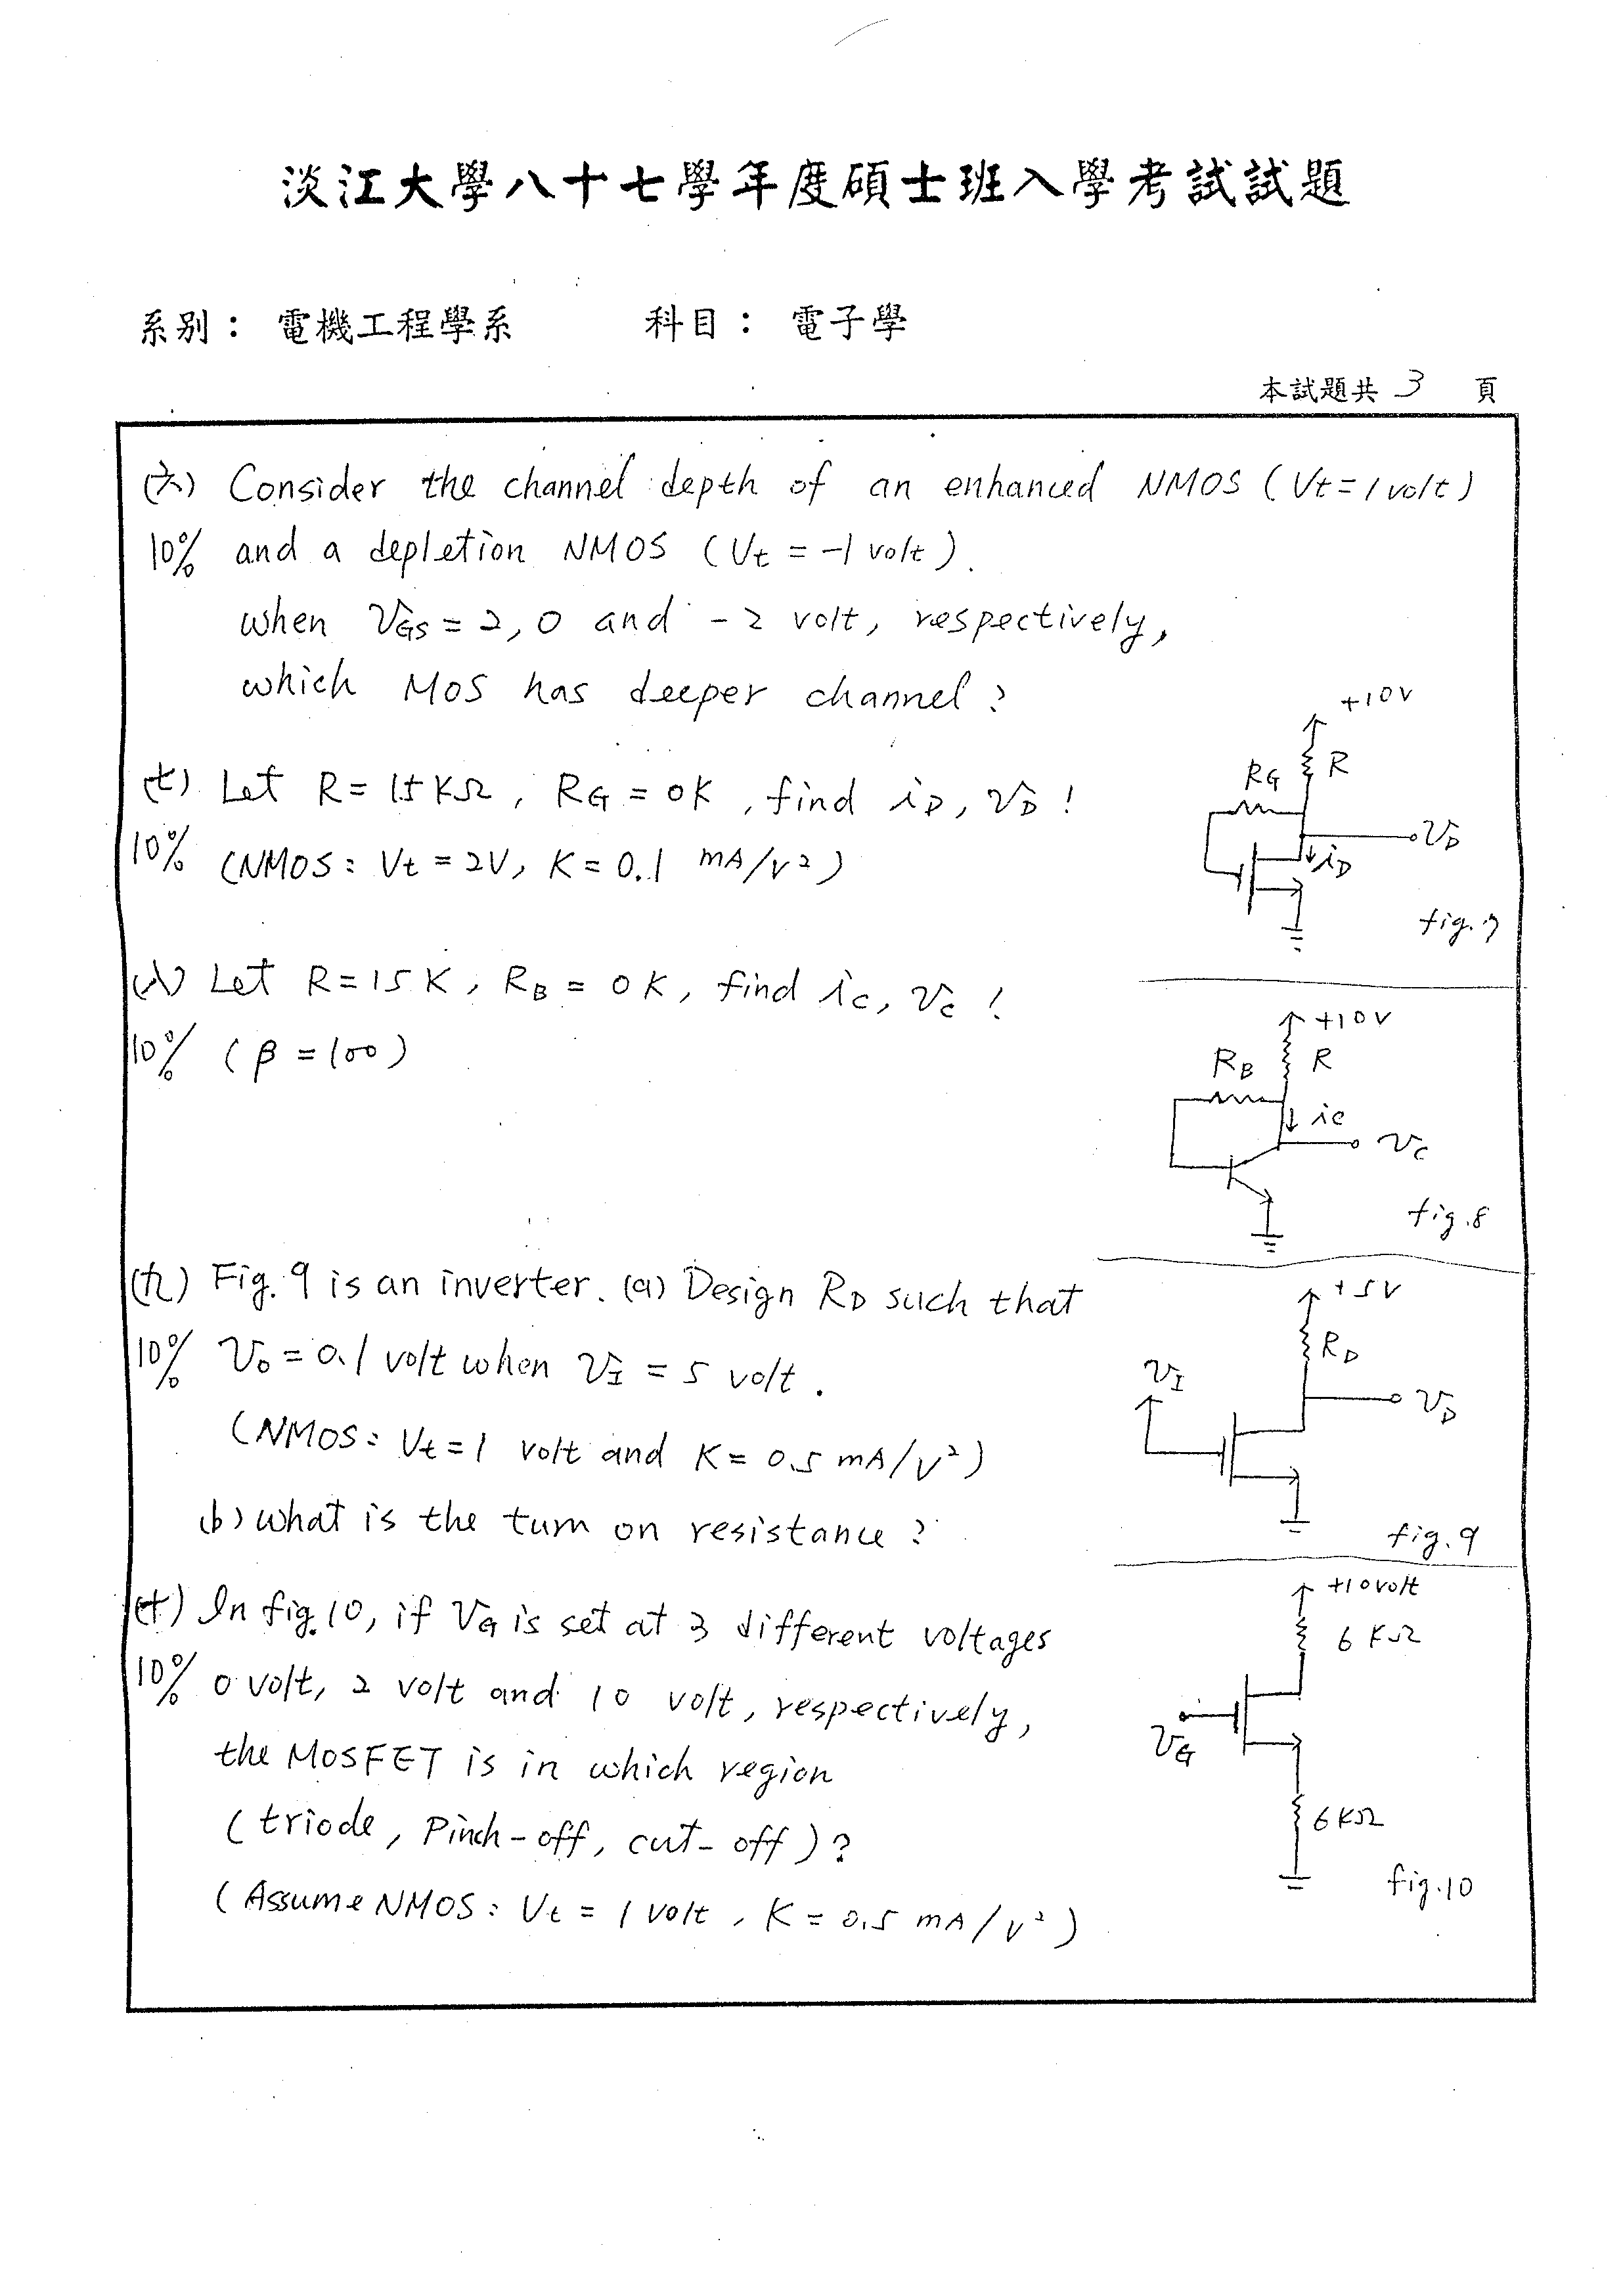 淡江大學八十七學年度碩士班入學考試試題
系別： 電機工程學系 科目： 電子學
本試題共 3 頁
(六) Consider the channel depth of an enhanced NMOS (Vt = 1 volt)
10% and a depletion NMOS (Vt = -1 volt).
when VGS = 2, 0 and -2 volt, respectively,
which MOS has deeper channel?
(七) Let R = 15 KΩ, RG = 0K, find iD, VD!
10% (NMOS: Vt = 2V, K = 0.1 mA/V²)
+10V
RG
R
VD
iD
fig.7
(八) Let R = 15 K, RB = 0 K, find ic, Vc!
10% (β = 100)
+10V
RB
R
ic
Vc
fig.8
(九) Fig. 9 is an inverter. (a) Design RD such that
10% Vo = 0.1 volt when VI = 5 volt.
(NMOS: Vt = 1 volt and K = 0.5 mA/V²)
(b) What is the turn on resistance?
+5V
RD
VI
VD
fig.9
(十) In fig.10, if VG is set at 3 different voltages
10% 0 volt, 2 volt and 10 volt, respectively,
the MOSFET is in which region
(triode, Pinch-off, cut-off)?
(Assume NMOS: Vt = 1 volt, K = 0.5 mA/V²)
+10 volt
6 KΩ
VG
6 KΩ
fig.10